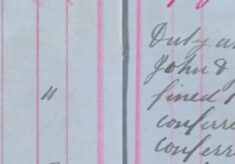 Duty
John &
" fined
conferre
conferr